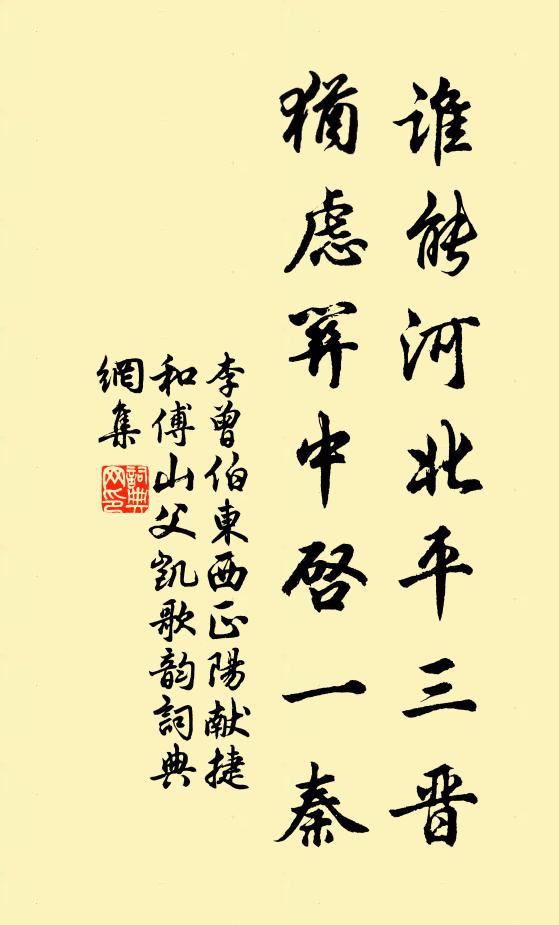 谁能河北平三晋
猶慮關中啓一秦
李曾伯東西正陽献捷
和傅山父凱歌韵詞典
網集
詞典
网印